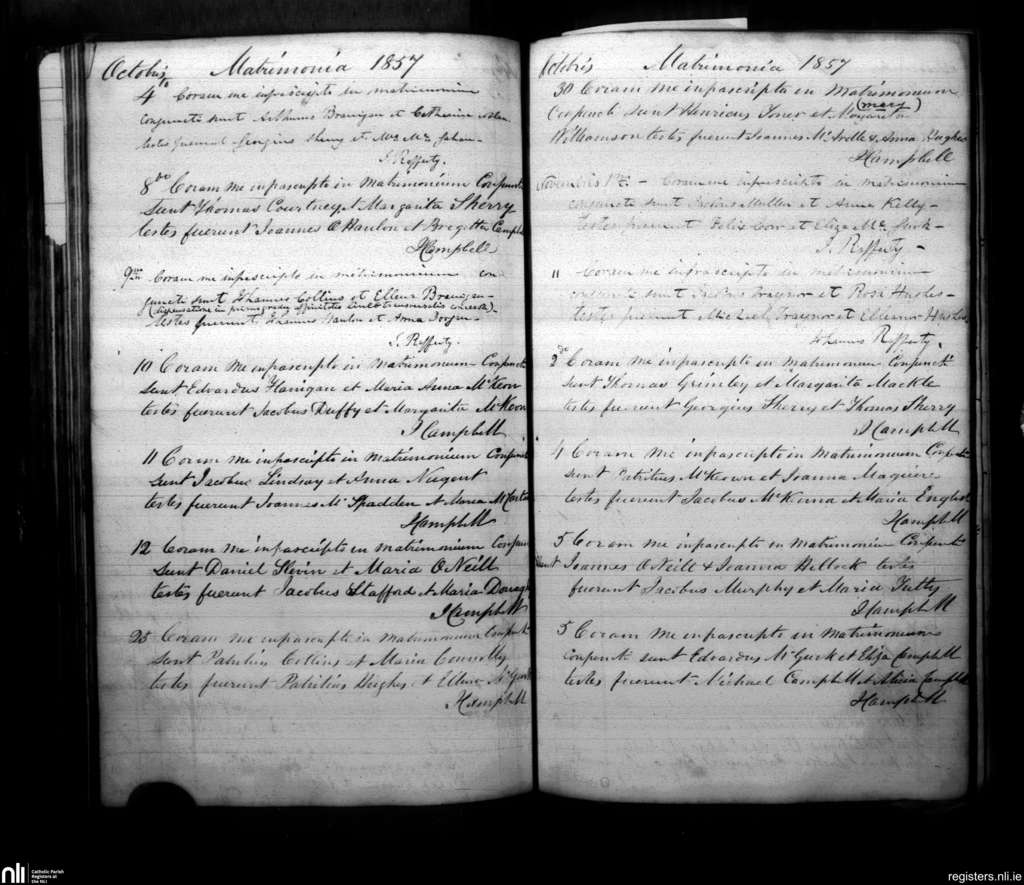 Octobris Matrimonia 1857
4 Coram me infrascripto in matrimonium
conjuncti sunt Arthurus Branigan et Catherina
testes fuerunt Georgius Sherry et
J. Rafferty.
8 Coram me infrascripto in Matrimonium Conjuncti
Sunt Thomas Courtney et Margarita Sherry
testes fuerunt Joannes O Hanlon et Brigitta Campbell
JCampbell
9 Coram me infrascripto in matrimonium con
juncti sunt Johannes Collins et Ellena Branigan
(dispensatione in primo gradu affinitatis lineae transversalis concessa)
testes fuerunt Joannes Hanlon et Anna
J. Rafferty.
10 Coram me infrascripto in Matrimonium Conjuncti
Sunt Edvardus Flanigan et Maria Anna McKeon
testes fuerunt Jacobus Duffy et Margarita McKeon
JCampbell
11 Coram me infrascripto in Matrimonium Conjuncti
Sunt Jacobus Lindsay et Anna Nugent
testes fuerunt Joannes Mc Spadden et Maria
JCampbell
12 Coram me infrascripto in matrimonium Conjuncti
Sunt Daniel Slevin et Maria O Neill
testes fuerunt Jacobus Stafford et Maria
JCampbell
25 Coram me infrascripto in Matrimonium Conjuncti
Sunt Patritius Collins et Maria Connolly
testes fuerunt Patritius Hughes et Ellena
JCampbell
Octobris Matrimonia 1857
30 Coram me infrascripto in Matrimonium
(mary)
Conjuncti Sunt Henricus Joner et Margarita
Williamson testes fuerunt Joannes Mc Ardle & Anna Hughes
JCampbell
Novembris 1 – Coram me infrascripto in matrimonium
conjuncti sunt Jacobus Mullen et Anna Kelly –
testes fuerunt Felix Corr et Eliza Mc Gurk –
J. Rafferty –
11 Coram me infrascripto in matrimonium
conjuncti sunt Jacobus Traynor et Rosa Hughes –
testes fuerunt Michael Traynor et Eleanor Hughes
Johannes Rafferty.
2 Coram me infrascripto in matrimonium Conjuncti
Sunt Thomas Grimley et Margarita Mackle
testes fuerunt Georgius Sherry et Thomas Sherry
JCampbell
4 Coram me infrascripto in Matrimonium Conjuncti
Sunt Patritius McKeown et Joanna Maguire
testes fuerunt Jacobus McKenna et Maria English
JCampbell
5 Coram me infrascripto in Matrimonium Conjuncti
Sunt Joannes O Neill & Joanna Hillock testes
fuerunt Jacobus Murphy et Maria
JCampbell
5 Coram me infrascripto in matrimonium
conjuncti sunt Edvardus McGurk et Eliza Campbell
testes fuerunt Michael Campbell et Alicia Campbell
JCampbell
nli Catholic Parish
Registers at
the NLI
registers.nli.ie